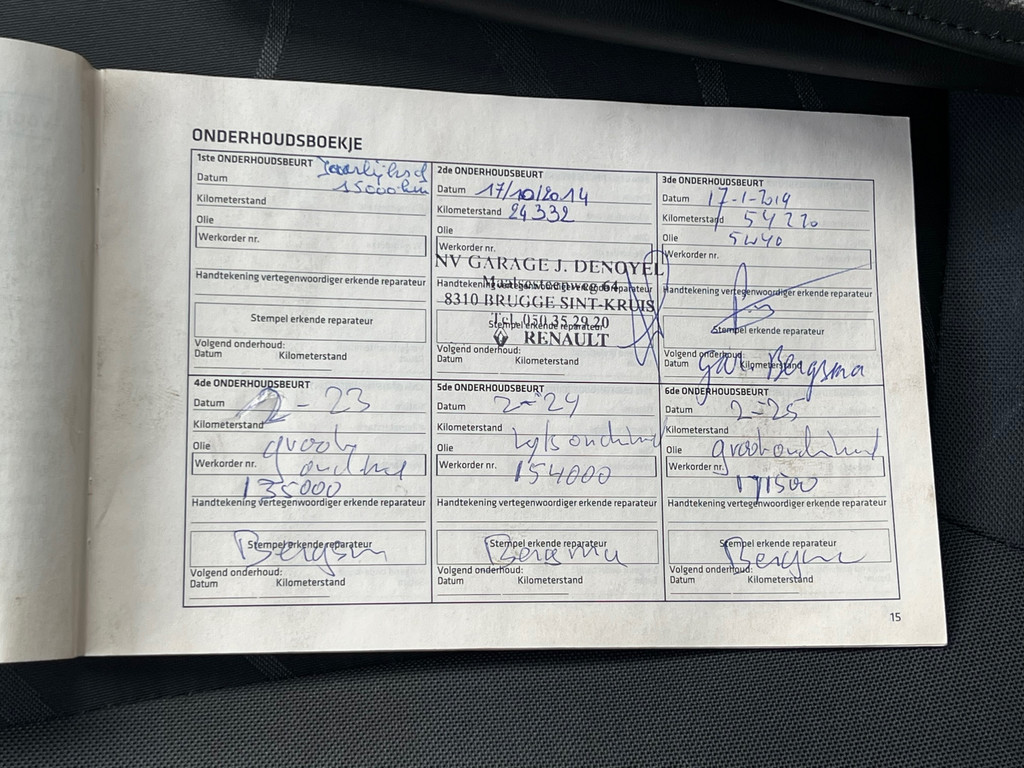 ONDERHOUDSBOEKJE
1ste ONDERHOUDSBEURT Jaarlijks of
15000km
Datum
Kilometerstand
Olie
Werkorder nr.
Handtekening vertegenwoordiger erkende reparateur
Stempel erkende reparateur
Volgend onderhoud:
Datum Kilometerstand
2de ONDERHOUDSBEURT
Datum 17/10/2014
Kilometerstand 24332
Olie
Werkorder nr.
NV GARAGE J. DENOYEL
Handtekening vertegenwoordiger erkende reparateur
Maalsesteenweg 64
8310 BRUGGE SINT-KRUIS
Tel. 050 35 29 20
Stempel erkende reparateur
RENAULT
Volgend onderhoud:
Datum Kilometerstand
3de ONDERHOUDSBEURT
Datum 17-1-2019
Kilometerstand 54220
Olie 5W40
Werkorder nr.
Handtekening vertegenwoordiger erkende reparateur
Stempel erkende reparateur
Volgend onderhoud:
Datum Kilometerstand
Bergsma
4de ONDERHOUDSBEURT
Datum 2-23
Kilometerstand
Olie groot
Werkorder nr. onderhoud
135000
Handtekening vertegenwoordiger erkende reparateur
Stempel erkende reparateur
Bergsma
Volgend onderhoud:
Datum Kilometerstand
5de ONDERHOUDSBEURT
Datum 2-24
Kilometerstand
Olie
Werkorder nr. 154000
Handtekening vertegenwoordiger erkende reparateur
Stempel erkende reparateur
Bergsma
Volgend onderhoud:
Datum Kilometerstand
6de ONDERHOUDSBEURT
Datum 2-25
Kilometerstand
Olie groot onderhoud
Werkorder nr.
171500
Handtekening vertegenwoordiger erkende reparateur
Stempel erkende reparateur
Bergsma
Volgend onderhoud:
Datum Kilometerstand
15